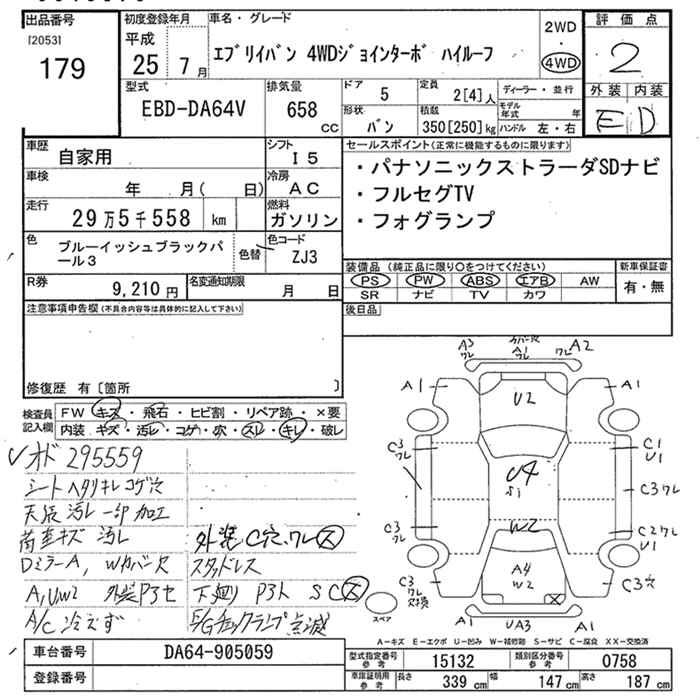 出品番号
[2053]
179
初度登録年月
平成
25 7月
車名・グレード
エブリイバン 4WDジョインターボ ハイルーフ
2WD
・
4WD
評価点
2
外装 内装
E D
型式
EBD-DA64V
排気量
658 cc
ドア 5
形状 バン
定員 2[4]人
積載 350[250]kg
ディーラー・並行
モデル年式 年
ハンドル 左・右
車歴 自家用
シフト I5
車検 年 月( 日)
冷房 AC
走行 29万5千558 km
燃料 ガソリン
色 ブルーイッシュブラックパール3
色替
色コード ZJ3
R券 9,210円
名変通知期限 月 日
セールスポイント(正常に機能するものに限ります)
・パナソニックストラーダSDナビ
・フルセグTV
・フォグランプ
装備品(純正品に限り○をつけてください)
PS PW ABS エアB AW
SR ナビ TV カワ
新車保証書
有・無
後日品
注意事項申告欄(不具合内容等は具体的に記入して下さい)
修復歴 有〔箇所 〕
検査員記入欄
FW キズ・飛石・ヒビ割・リペア跡・×要
内装 キズ・汚レ・コゲ・穴・スレ・キレ・破レ
レオド 295559
シート ヘタリ キレ コゲ穴
天張 汚レ 一部加工
荷室キズ 汚レ
外装 C穴、ワレ 大
Dミラー A, Wカバー欠
スタッドレス
A,U,W2 外装P3セ
下廻り P3ト S C 大
A/C 冷えず
E/Gチェックランプ点滅
A3 ワレ
A1
ワレ A2
A1
U2
A1
C3 ワレ
U4
S1
C1
U1
C3 ワレ
C3 ワレ
W2
C2 ワレ
U1
A4
W2
C3
ワレ
欠損
C3 穴
スペア
A1
UA3
A1
A-キズ E-エクボ U-凹み W-補修跡 S-サビ C-腐食 XX-交換済
車台番号 DA64-905059
登録番号
型式指定番号 参考 15132
類別区分番号 参考 0758
車庫証明用 参考 長さ 339 cm 幅 147 cm 高さ 187 cm